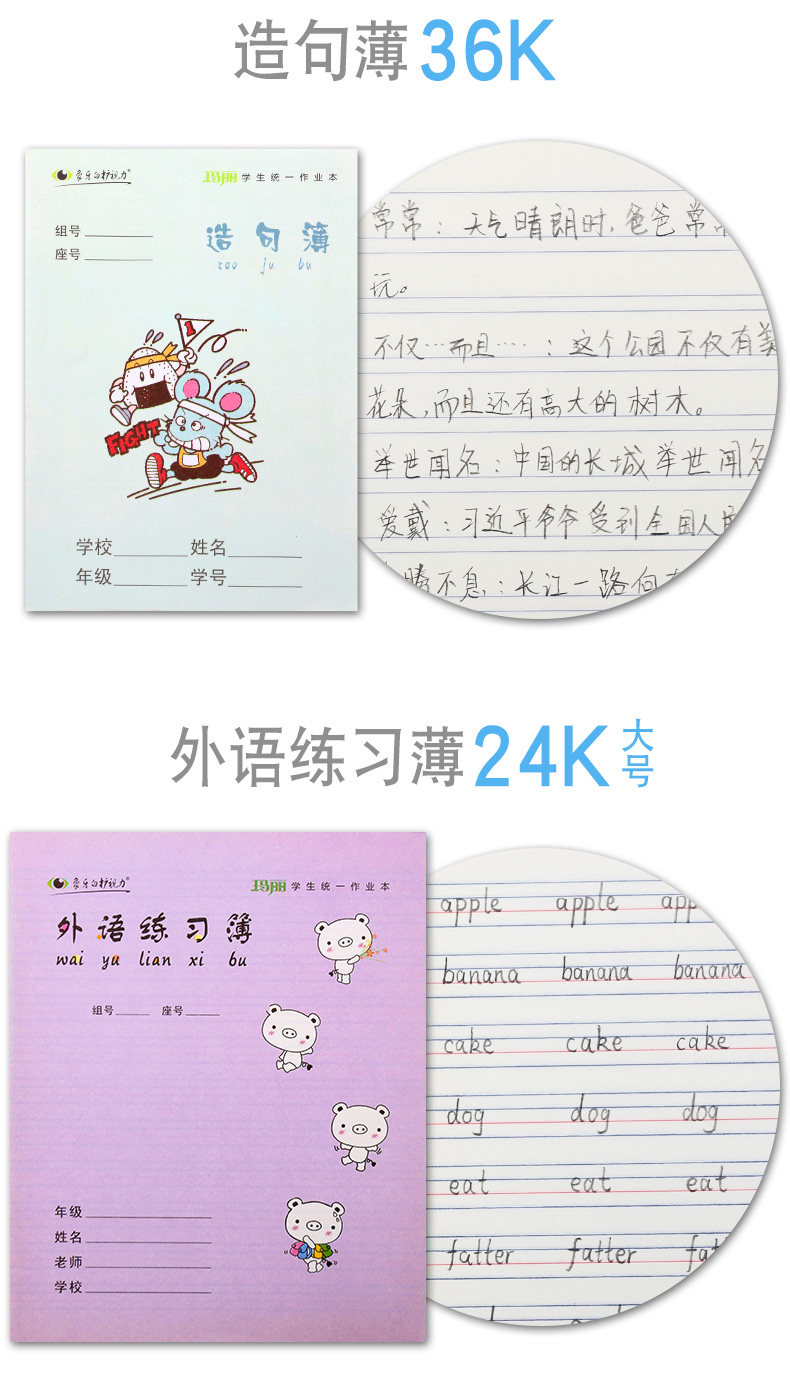 造句薄36K
象牙白护视力®
玛丽 学生统一作业本
组号
座号
造句薄
zao ju bu
1
FIGHT
学校 姓名
年级 学号
常常：天气晴朗时,爸爸常常
玩。
不仅……而且……：这个公园不仅有美
花朵,而且还有高大的树木。
举世闻名：中国的长城举世闻名
爱戴：习近平爷爷受到全国人民
腾不息：长江一路向
外语练习薄24K大号
象牙白护视力®
玛丽 学生统一作业本
外语练习簿
wai yu lian xi bu
组号 座号
年级
姓名
老师
学校
apple apple app
banana banana banana
cake cake cake
dog dog dog
eat eat eat
fatter fatter fat